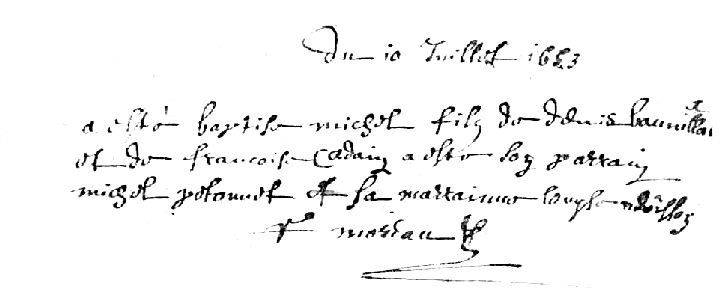 Du 10 Juillet 1653
a esté baptise michel filz de denis
et de francoise Cadain a esté son parrain
michel petonnet et sa marraine louyse
F moreau